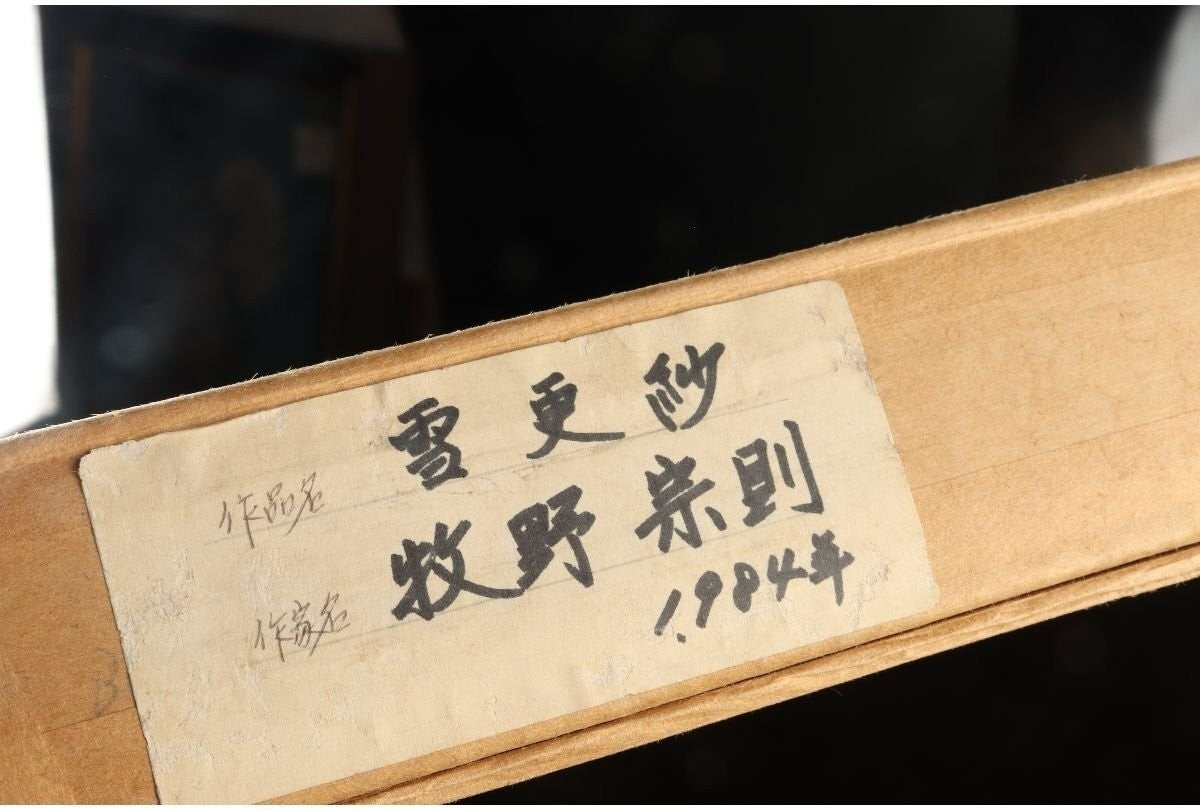 作品名 雪更紗
作家名 牧野宗則
1984年